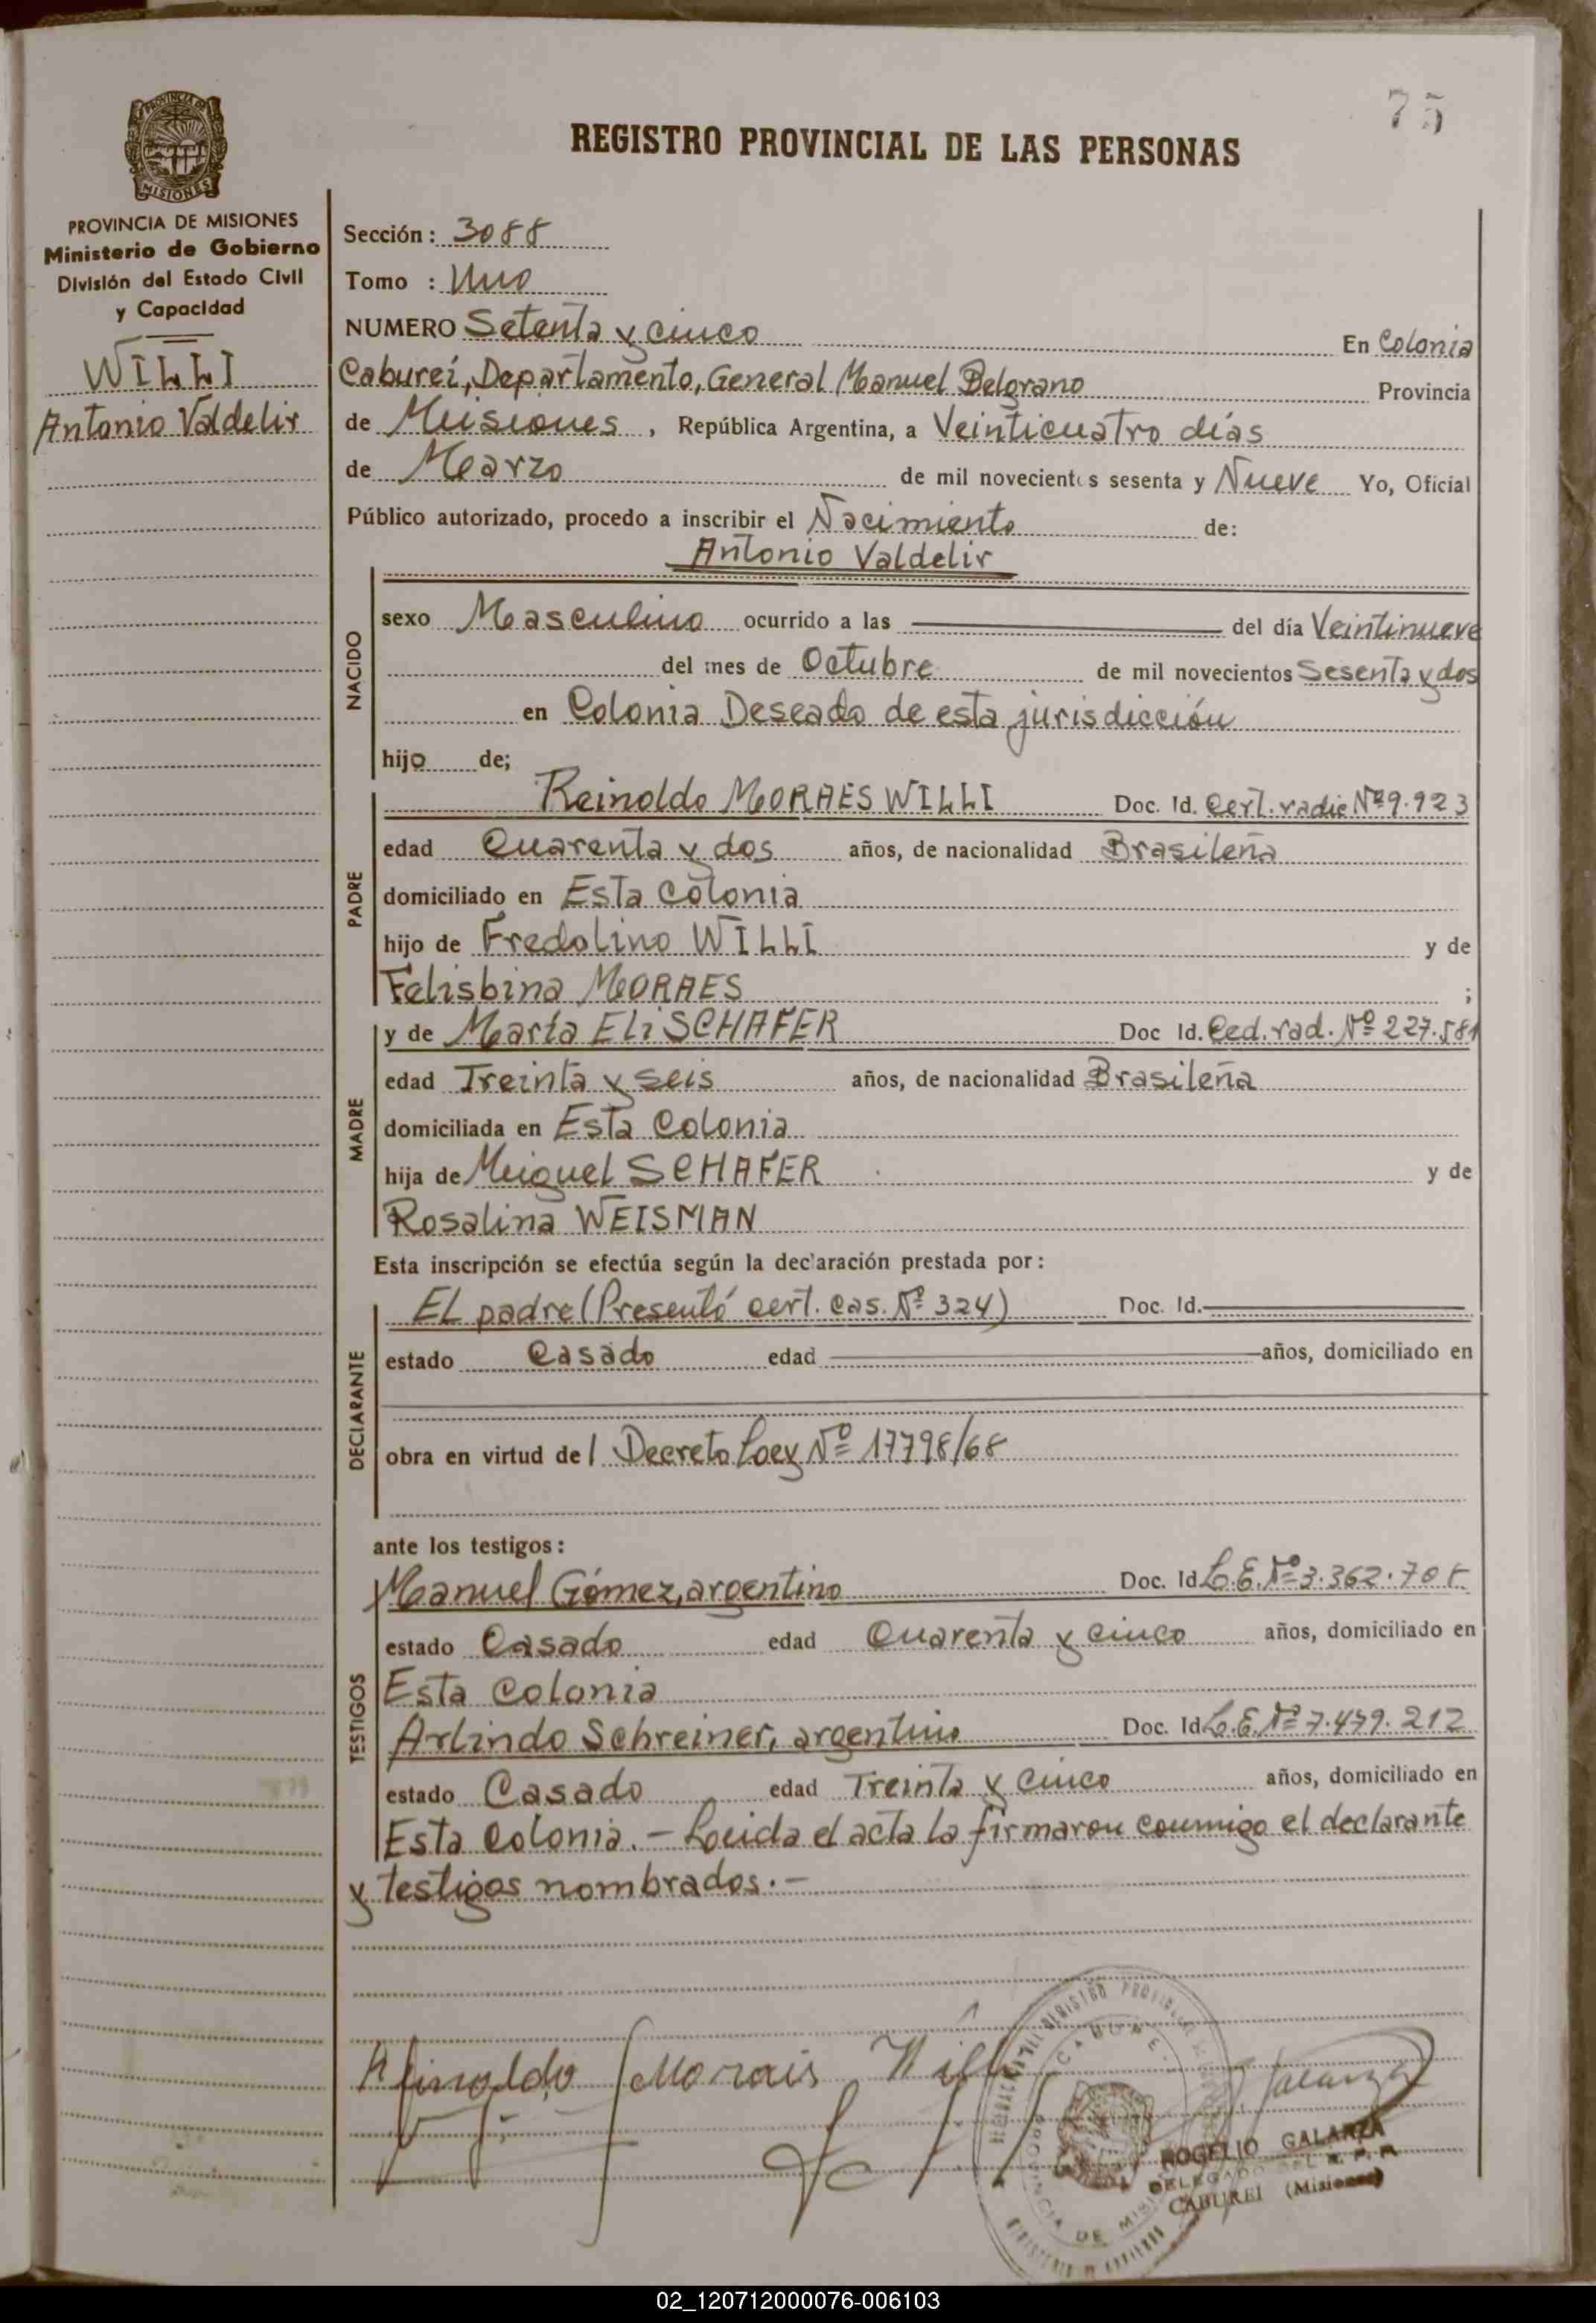 75
REGISTRO PROVINCIAL DE LAS PERSONAS
PROVINCIA DE MISIONES
Ministerio de Gobierno
División del Estado Civil
y Capacidad
WILLI
Antonio Valdelir
Sección: 3088
Tomo : Uno
NUMERO Setenta y cinco En Colonia
Caburei, Departamento, General Manuel Belgrano Provincia
de Misiones, República Argentina, a Veinticuatro días
de Marzo de mil novecientos sesenta y Nueve Yo, Oficial
Público autorizado, procedo a inscribir el Nacimiento de:
Antonio Valdelir
NACIDO
sexo Masculino ocurrido a las del día Veintinueve
del mes de Octubre de mil novecientos Sesenta y dos
en Colonia Deseado de esta jurisdicción
hijo de;
PADRE
Reinoldo MORAES WILLI Doc. Id. Cert. radic Nº 9.923
edad Cuarenta y dos años, de nacionalidad Brasileña
domiciliado en Esta Colonia
hijo de Fredolino WILLI y de
Felisbina MORAES ;
MADRE
y de María Eli SCHAFER Doc Id. Ced. rad. Nº 227.581
edad Treinta y seis años, de nacionalidad Brasileña
domiciliada en Esta Colonia
hija de Miguel SCHAFER y de
Rosalina WEISMAN
Esta inscripción se efectúa según la declaración prestada por:
DECLARANTE
El padre (Presentó cert. cas. Nº 324) Doc. Id.
estado Casado edad años, domiciliado en
obra en virtud del Decreto Ley Nº 17798/68
ante los testigos:
TESTIGOS
Manuel Gómez, argentino Doc. Id L.E. Nº 3.362.708
estado Casado edad Cuarenta y cinco años, domiciliado en
Esta Colonia
Arlindo Schreiner, argentino Doc. Id L.E. Nº 7.479.212
estado Casado edad Treinta y Cinco años, domiciliado en
Esta Colonia.- Leida el acta la firmaron conmigo el declarante
y testigos nombrados.-
Reinoldo Morais Willi
ROGELIO GALARZA
DELEGADO DEL R. P. P.
CABUREI (Misiones)
02_120712000076-006103